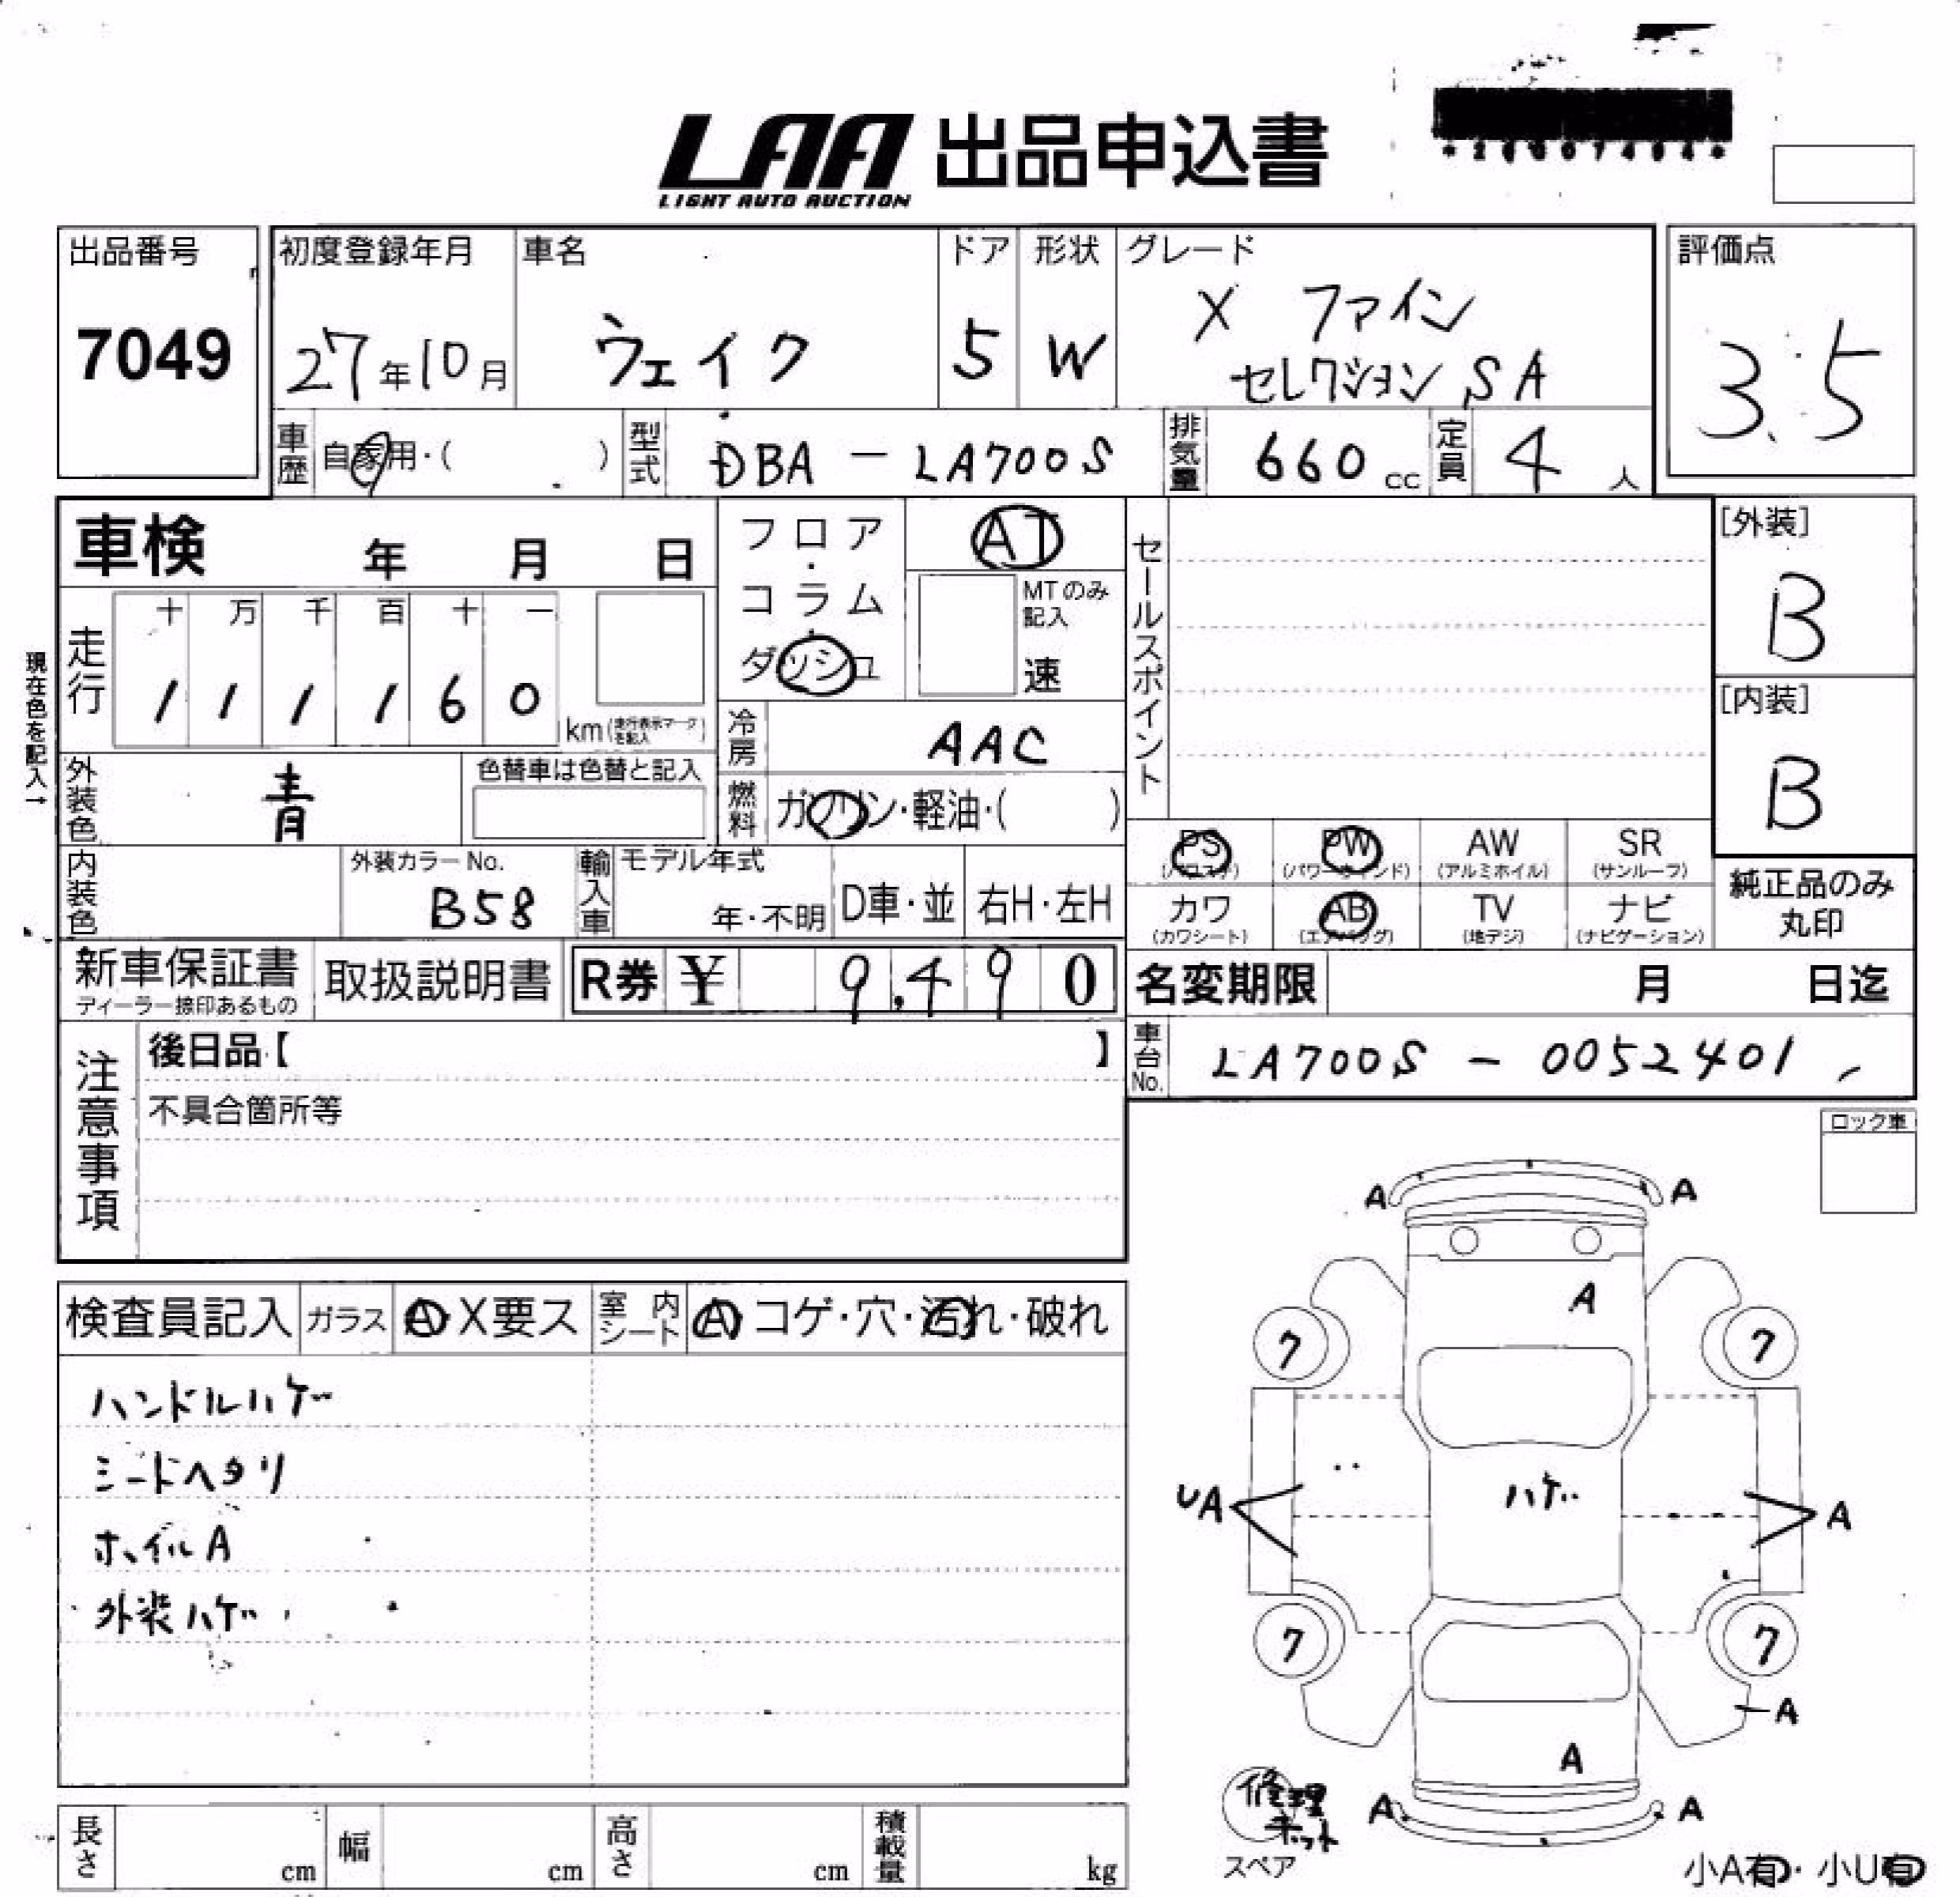 LAA 出品申込書
LIGHT AUTO AUCTION
出品番号
7049
初度登録年月
27年10月
車名
ウェイク
ドア
5
形状
W
グレード
X ファイン
セレクション SA
評価点
3.5
車歴 自家用・( )
型式 DBA - LA700S
排気量 660 cc
定員 4 人
車検 年 月 日
フロア・
コラム・
ダッシュ
AT
MTのみ
記入
速
セールスポイント
[外装]
B
[内装]
B
現在色を記入→
走行
十 万 千 百 十 一
1 1 1 1 6 0
km(走行表示マークを記入)
冷房 AAC
外装色 青
色替車は色替と記入
燃料 ガソリン・軽油・( )
内装色
外装カラーNo.
B58
輸入車
モデル年式
年・不明
D車・並
右H・左H
PS
(パワステ)
PW
(パワーウィンド)
AW
(アルミホイル)
SR
(サンルーフ)
カワ
(カワシート)
AB
(エアバッグ)
TV
(地デジ)
ナビ
(ナビゲーション)
純正品のみ
丸印
新車保証書
ディーラー捺印あるもの
取扱説明書
R券 ¥ 9,490
名変期限 月 日迄
車台No. LA700S - 0052401
注意事項
後日品【 】
不具合箇所等
ロック車
検査員記入
ガラス A X要ス
室内シート A コゲ・穴・汚れ・破れ
ハンドルハゲ
シートヘタリ
ホイルA
外装ハゲ
A A
A
7 7
UA ハゲ A
7 7
A
A
A A
修理
キット
スペア
小A有・小U有
長さ cm
幅 cm
高さ cm
積載量 kg